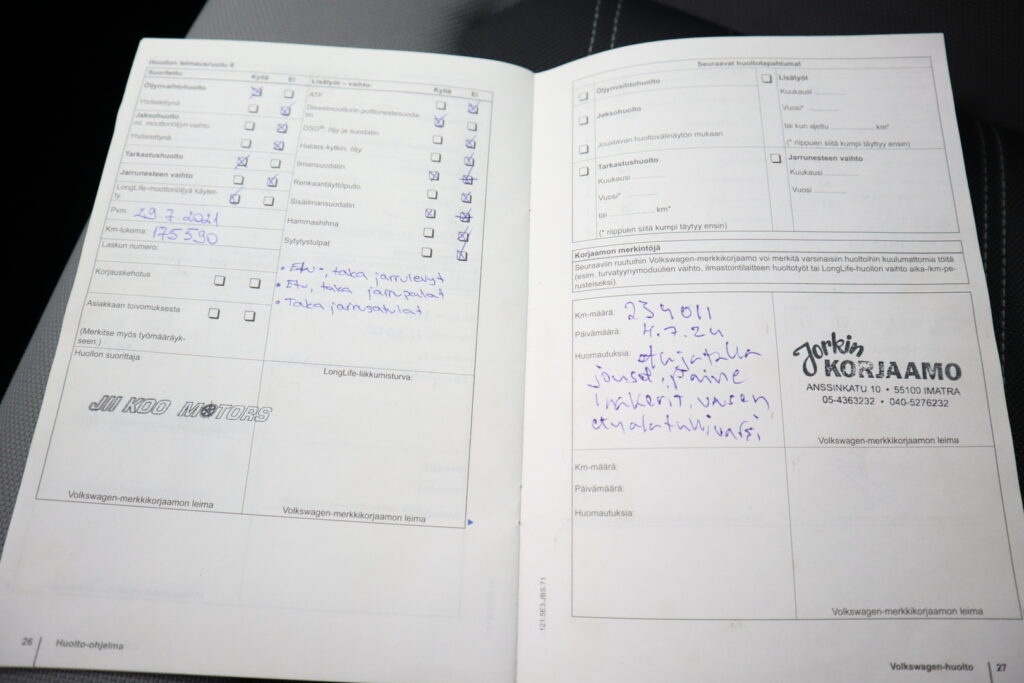 Huollon leimausruutu 6
Suoritettu: Kyllä Ei
Öljynvaihtohuolto
Yhdistettynä
Jaksohuolto
ml. moottoriöljyn vaihto
Yhdistettynä
Tarkastushuolto
Jarrunesteen vaihto
LongLife-moottoriöljyä käytet-
ty
Pvm. 29.7.2021
Km-lukema: 175590
Laskun numero:
Korjauskehotus
Asiakkaan toivomuksesta
(Merkitse myös työmääräyk-
seen.)
Huollon suorittaja:
JII KOO MOTORS
Volkswagen-merkkikorjaamon leima
Lisätyöt – vaihto: Kyllä Ei
ATF
Dieselmoottorin polttonestesuoda-
tin
DSG® öljy ja suodatin
Haldex-kytkin: öljy
Ilmansuodatin
Renkaantäyttöpullo
Sisäilmansuodatin
Hammashihna
Sytytystulpat
• Etu-, taka jarrulevyt
• Etu, taka jarrupalat
• Taka jarrusatulat
LongLife-liikkumisturva:
Volkswagen-merkkikorjaamon leima
26 Huolto-ohjelma
Seuraavat huoltotapahtumat
Öljynvaihtohuolto
Jaksohuolto
Joustavan huoltovälinäytön mukaan
Tarkastushuolto
Kuukausi
Vuosi*
tai km*
(* riippuen siitä kumpi täyttyy ensin)
Lisätyöt
Kuukausi
Vuosi*
tai kun ajettu km*
(* riippuen siitä kumpi täyttyy ensin)
Jarrunesteen vaihto
Kuukausi
Vuosi
Korjaamon merkintöjä
Seuraaviin ruutuihin Volkswagen-merkkikorjaamo voi merkitä varsinaisiin huoltoihin kuulumattomia töitä
(esim. turvatyynymoduulien vaihto, ilmastointilaitteen huoltotyöt tai LongLife-huollon vaihto aika-/km-pe-
rusteiseksi).
Km-määrä: 234011
Päivämäärä: 4.7.24
Huomautuksia:
jouset, vasen
etualatukivarsi
Jorkin
KORJAAMO
ANSSINKATU 10 • 55100 IMATRA
05-4363232 • 040-5276232
Volkswagen-merkkikorjaamon leima
Km-määrä:
Päivämäärä:
Huomautuksia:
Volkswagen-merkkikorjaamon leima
Volkswagen-huolto 27